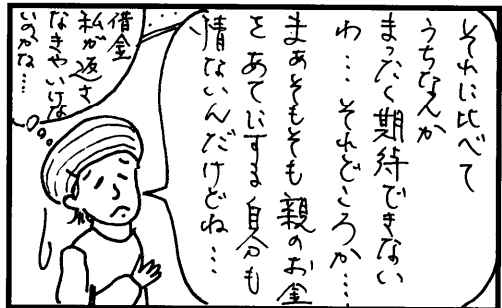 それに比べて
うちなんか
まったく期待できない
わ…それどころか…
まぁそもそも親のお金
をあてにする自分も
情ないんだけどね…
借金
私が返さ
なきゃいけな
いのかな……